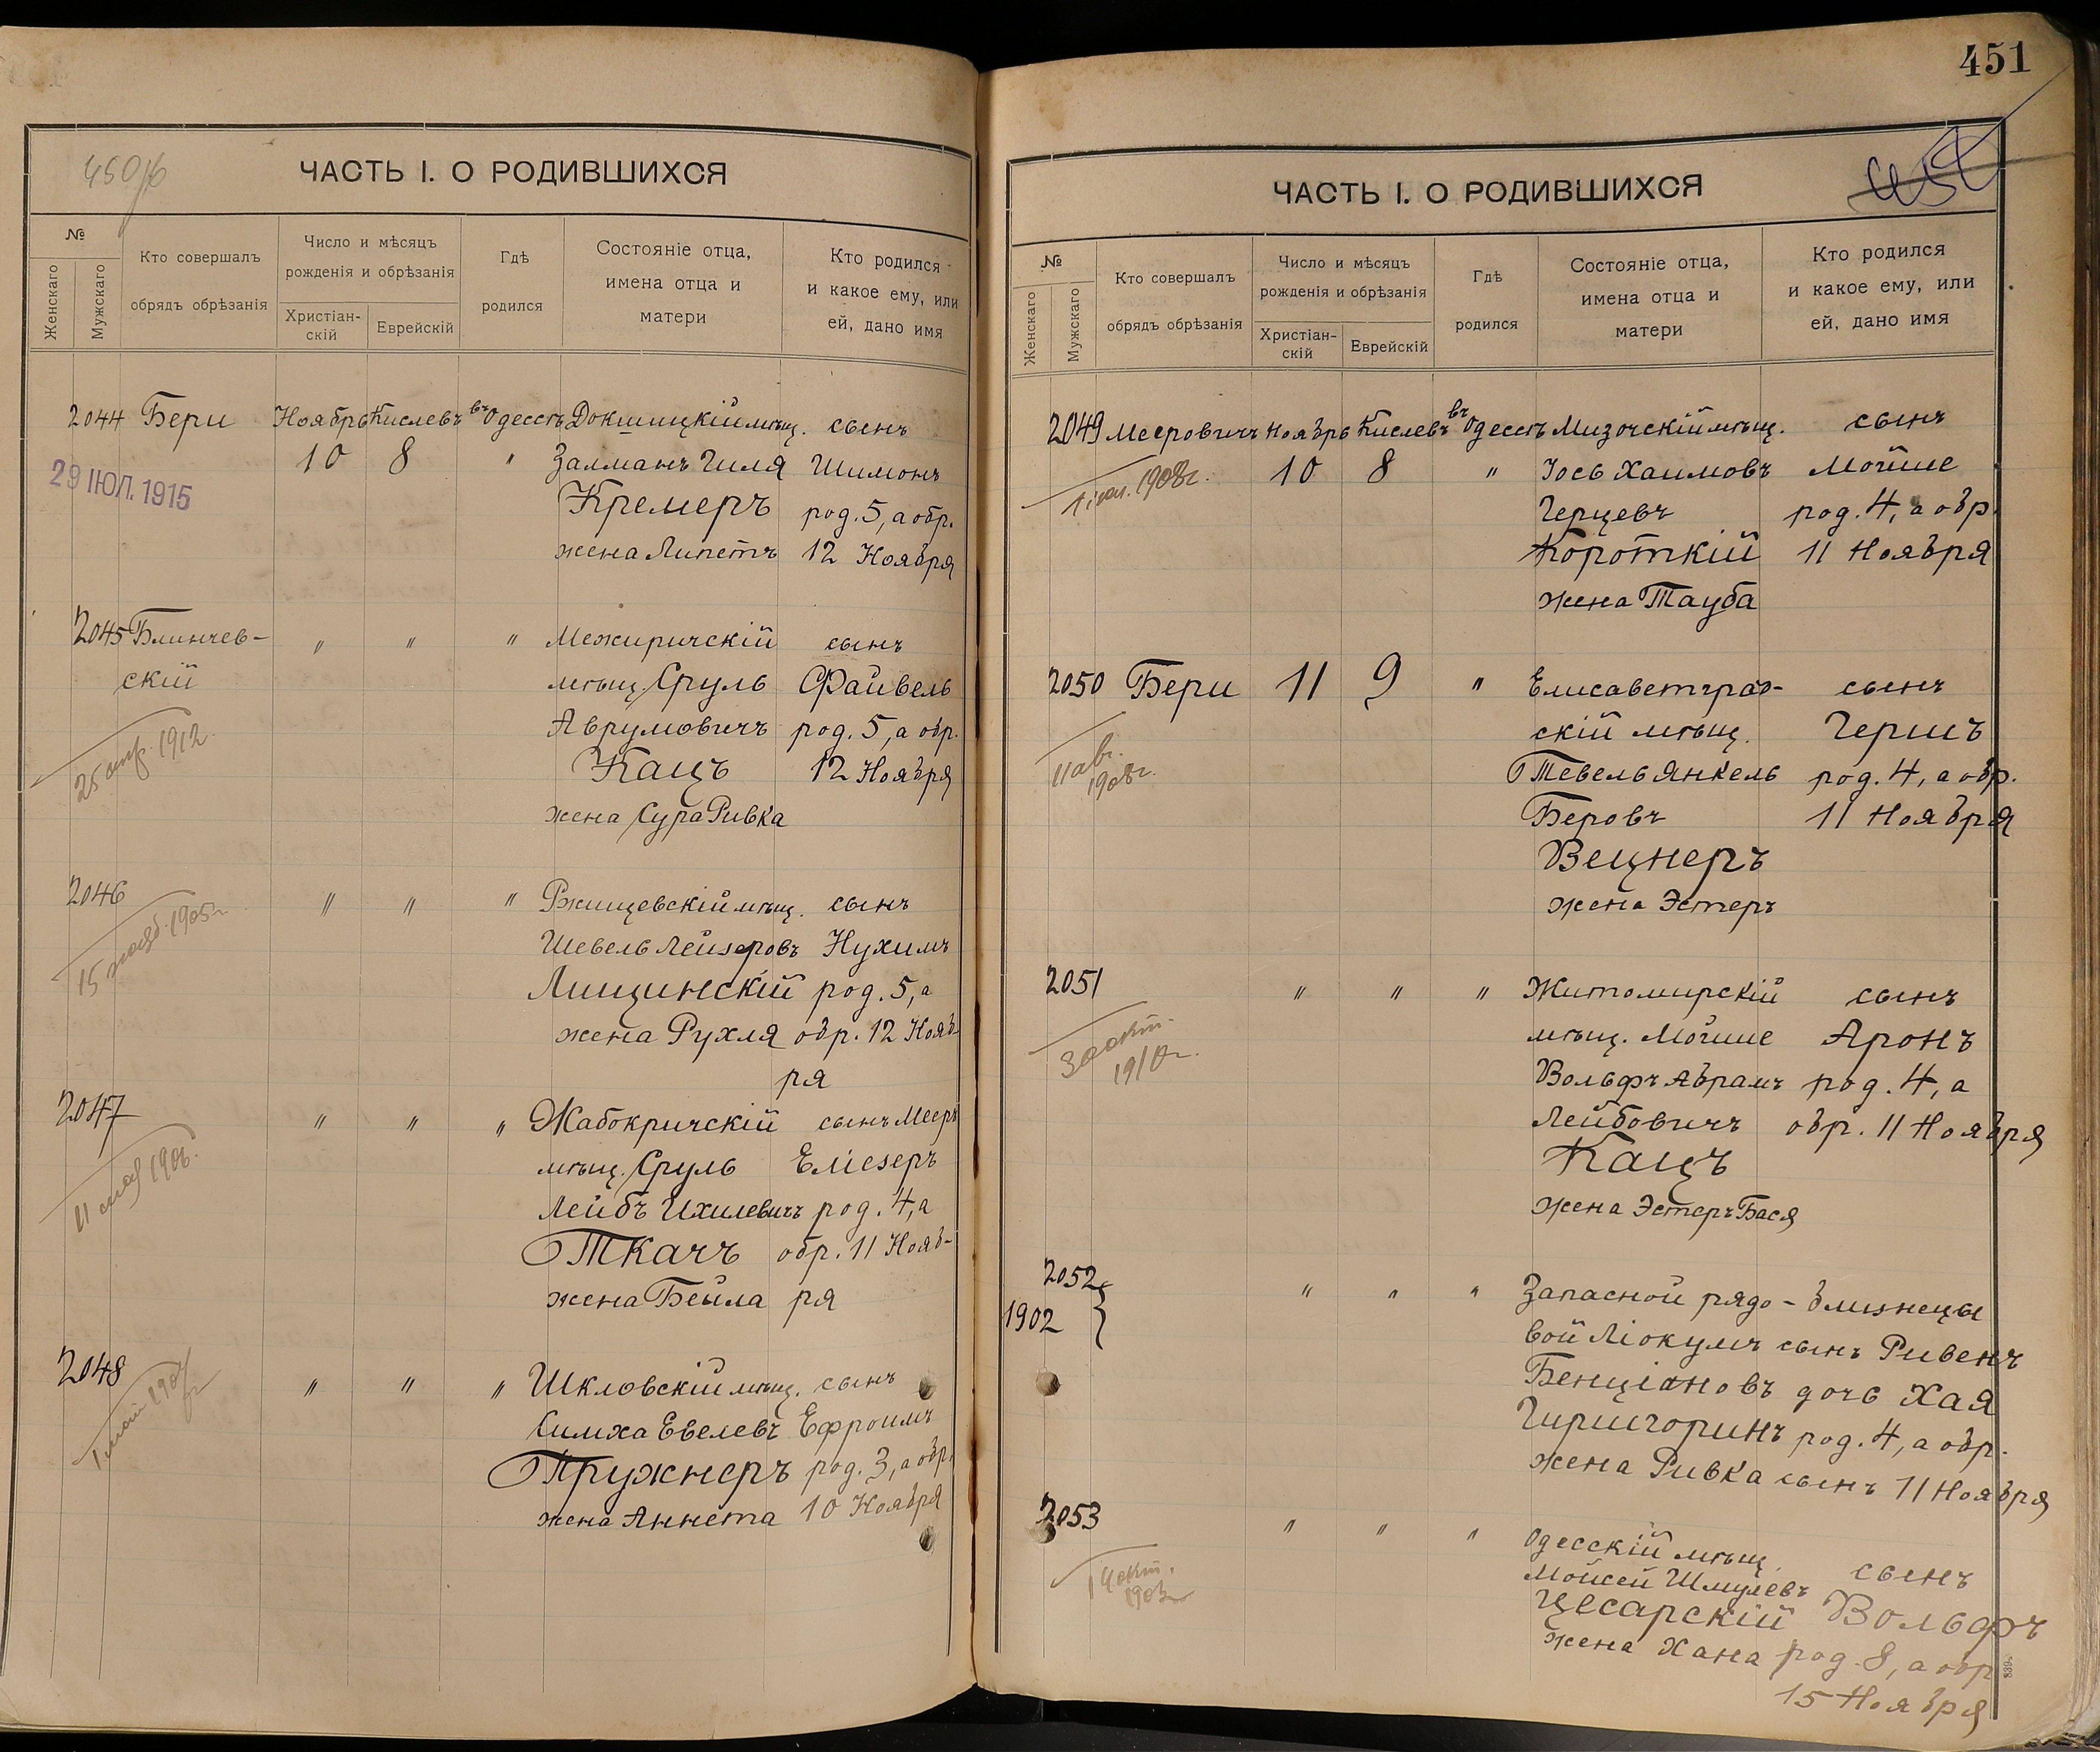 450/б
ЧАСТЬ I. О РОДИВШИХСЯ
№
Женскаго
Мужскаго
Кто совершалъ
обрядъ обрѣзанія
Число и мѣсяцъ
рожденія и обрѣзанія
Христіан-
скій
Еврейскій
Гдѣ
родился
Состояніе отца,
имена отца и
матери
Кто родился
и какое ему, или
ей, дано имя
2044 Бери Ноябрь Кислевъ въ Одессѣ Докшицкій мѣщ. сынъ
29 ІЮЛ. 1915 10 8 " Залманъ Гиля Шимонъ
Кремеръ род. 5, а обр.
жена Липетъ 12 Ноября
2045 Блинчев- " " " Межиричскій сынъ
скій мѣщ. Сруль Файвель
Аврумовичъ род. 5, а обр.
25 апр. 1912 Кацъ 12 Ноября
жена Сура Ривка
2046 " " " Ржищевскій мѣщ. сынъ
15 1905г. Шевель Лейзеровъ Нухимъ
Лищинскій род. 5, а
жена Рухля обр. 12 Нояб-
ря
2047 " " " Жабокричскій сынъ Мееръ
11 мая 190 мѣщ. Сруль Еліезеръ
Лейбъ Ихилевичъ род. 4, а
Ткачъ обр. 11 Нояб-
жена Бейла ря
2048 " " " Шкловскій мѣщ. сынъ
1 май 190 Симха Евелевъ Ефроимъ
Пружнеръ род. 3, а обр.
жена Аннета 10 Ноября
451
ЧАСТЬ I. О РОДИВШИХСЯ
451
№
Женскаго
Мужскаго
Кто совершалъ
обрядъ обрѣзанія
Число и мѣсяцъ
рожденія и обрѣзанія
Христіан-
скій
Еврейскій
Гдѣ
родился
Состояніе отца,
имена отца и
матери
Кто родился
и какое ему, или
ей, дано имя
2049 Мееровичъ Ноябрь Кислевъ въ Одессѣ Мизочскій мѣщ. сынъ
1908г. 10 8 " Іось Хаимовъ Мойше
Герцевъ род. 4, а обр.
Короткій 11 Ноября
жена Тауба
2050 Бери 11 9 " Елисаветград- сынъ
скій мѣщ. Гершъ
11 ав. Тевель Янкель род. 4, а обр.
1908г. Беровъ 11 Ноября
Вецнеръ
жена Эстеръ
2051 " " " Житомирскій сынъ
30 окт. мѣщ. Мойше Аронъ
1910г. Вольфъ Абрамъ род. 4, а
Лейбовичъ обр. 11 Ноября
Кацъ
жена Эстеръ Бася
2052 " " " Запасной рядо- близнецы
1902 вой Ліокумъ сынъ Ривенъ
Бенціановъ дочь Хая
Гиршгоринъ род. 4, а обр.
жена Ривка сынъ 11 Ноября
2053 " " " Одесскій мѣщ. сынъ
14 окт. Мойсей Шмулевъ
1903г. Цесарскій Вольфъ
жена Хана род. 8, а обр
15 Ноября